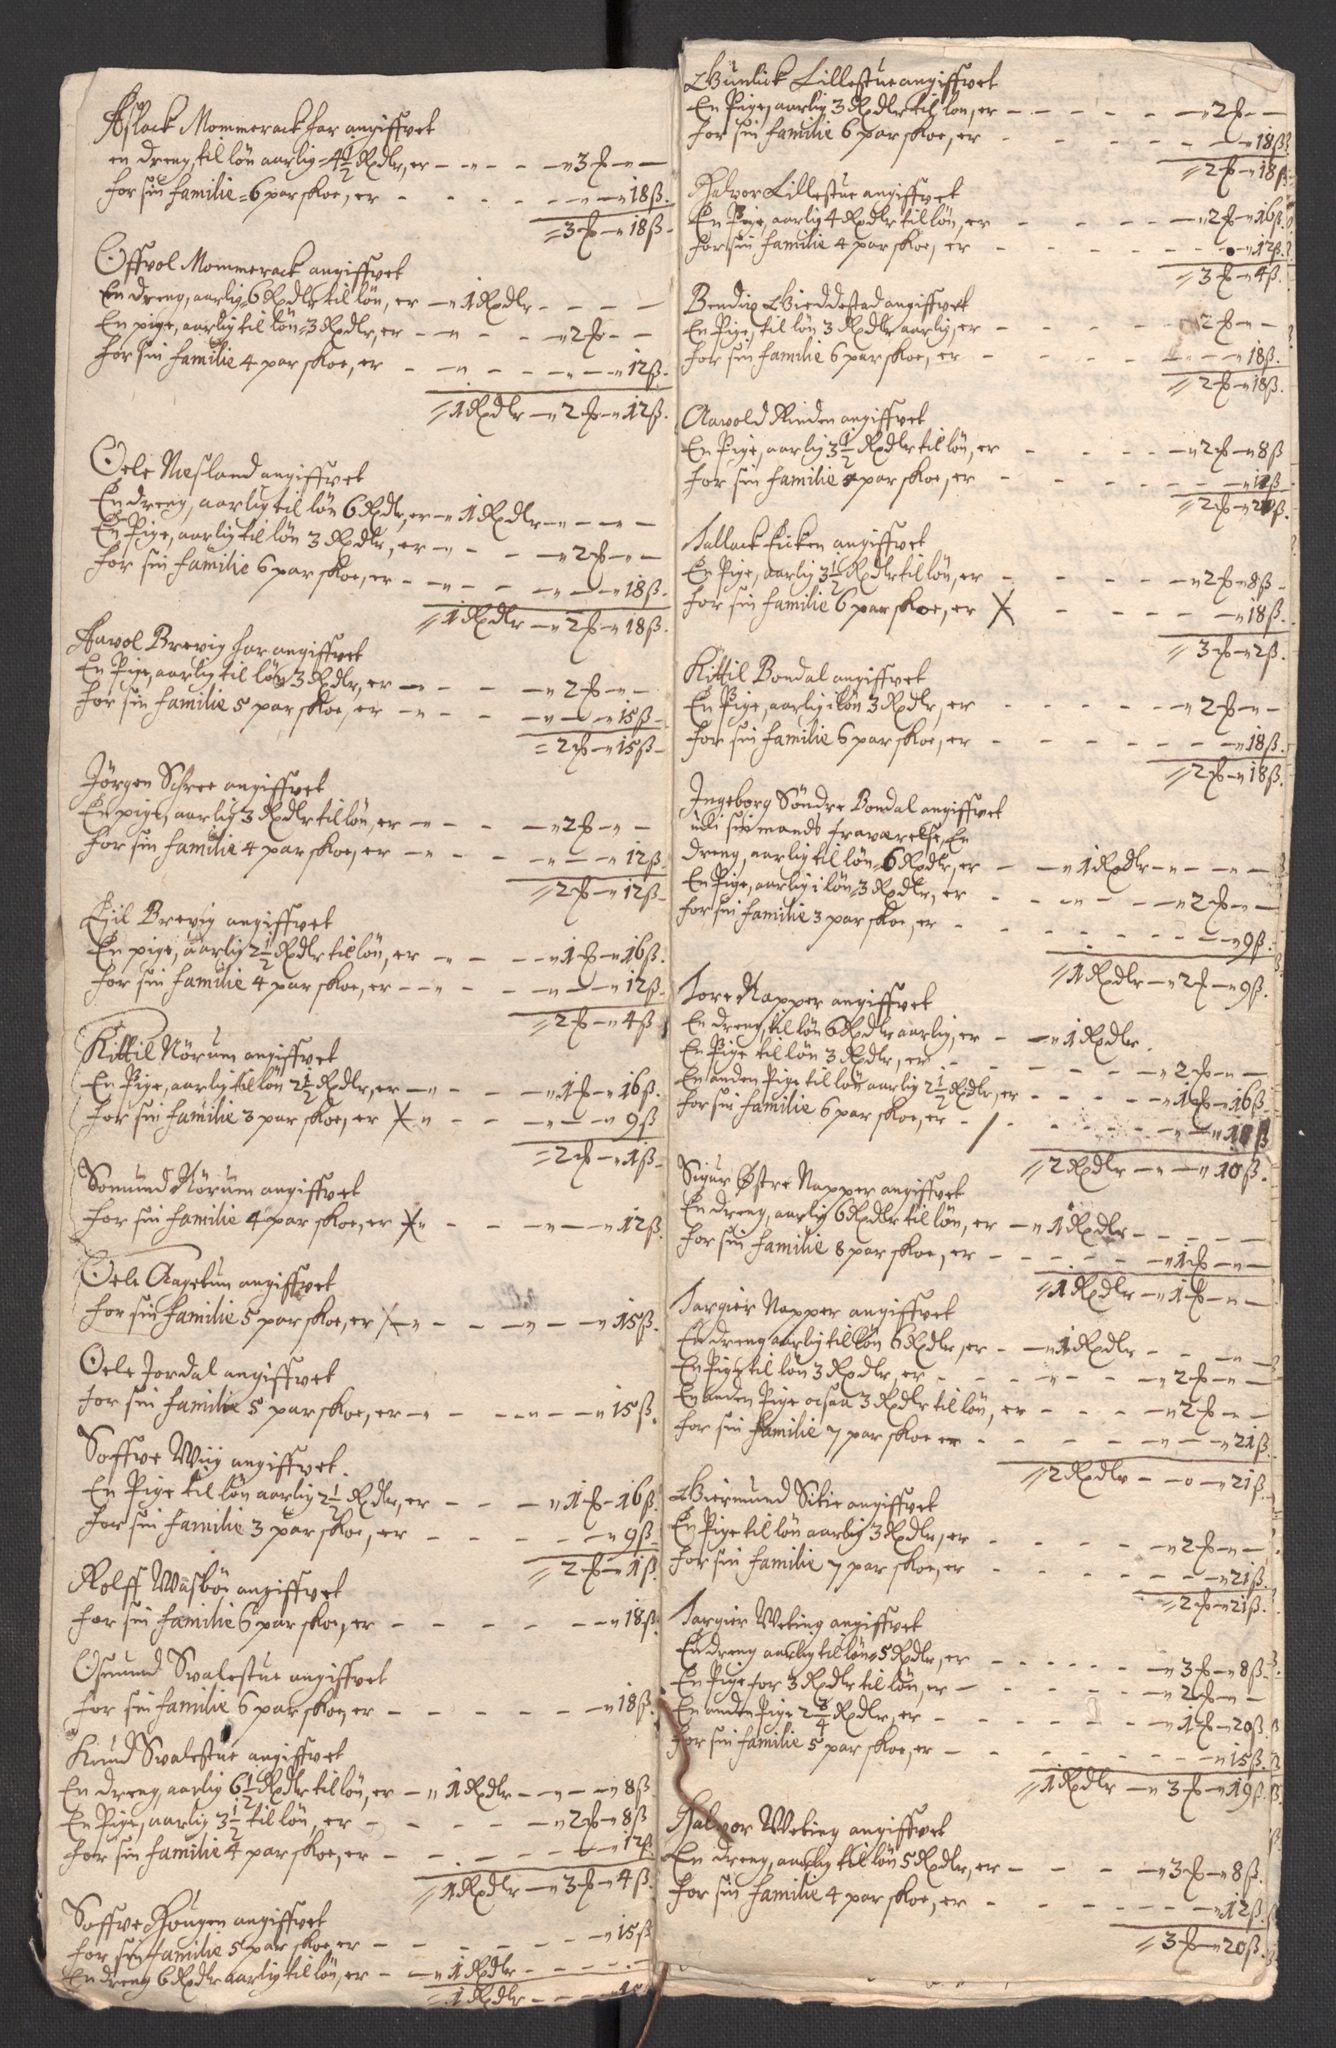 Aslack Mommerack har angiffvet
en dreng, til løn aarlig 4½ Rdlr, er - - - - 3 ƒ - -
for sin familie 6 par skoe, er - - - - 18 ß.
3 ƒ - 18 ß
Offvol Mommerack angiffvet
En dreng, aarlig 6 Rdlr til løn, er - 1 Rdlr - - - -
En pige, aarlig til løn 3 Rdlr, er - - - - 2 ƒ - -
for sin familie 4 par skoe, er - - - - 12 ß.
1 Rdlr - 2 ƒ - 12 ß.
Oele Nesland angiffvet
En dreng, aarlig til løn 6 Rdlr, er - 1 Rdlr - - - -
En Pige, aarlig til løn 3 Rdlr, er - - - 2 ƒ - -
for sin familie 6 par skoe, er - - - - 18 ß.
1 Rdlr - 2 ƒ - 18 ß.
Aavol Brevig har angiffvet
En Pige, aarlig til løn 3 Rdlr, er - - - 2 ƒ - -
for sin familie 5 par skoe, er - - - - 15 ß -
= 2 ƒ - 15 ß -
Jørgen Schree angiffvet
En pige, aarlig 3 Rdlr til løn, er - - - 2 ƒ - -
for sin familie 4 par skoe, er - - - - 12 ß
2 ƒ - 12 ß -
Eiil Brevig angiffvet
En pige, aarlig 2½ Rdlr til løn, er - - - 1 ƒ - 16 ß.
for sin familie 4 par skoe, er - - - - 12 ß -
2 ƒ - 4 ß
Kittil Nörum angiffvet
En Pige, aarlig til løn 2½ Rdlr, er - - - 1 ƒ - 16 ß.
for sin familie 3 par skoe, er X - - - - 9 ß
2 ƒ - 1 ß -
Somund Nörum angiffvet
for sin familie 4 par skoe, er X - - - - 12 ß
Oele Aagetun angiffvet
for sin familie 5 par skoe, er X - - - - 15 ß.
Oele Jordal angiffvet
for sin familie 5 par skoe, er - - - - 15 ß.
Soffve Wiig angiffvet.
En Pige til løn aarlig 2½ Rdlr, er - - - 1 ƒ - 16 ß
for sin familie 3 par skoe, er - - - - 9 ß -
2 ƒ - 1 ß
Rolff Wasböe angiffvet
for sin familie 6 par skoe, er - - - - 18 ß.
Osmund Swalestue angiffvet
for sin familie 6 par skoe, er - - - - 18 ß.
Knud Swalestue angiffvet
En dreng, aarlig 6½ Rdlr til løn, er - 1 Rdlr - - - 8 ß
En Pige, aarlig 3½ til løn, er - - - - 2 ƒ - 8 ß
for sin familie 4 par skoe, er - - - - 12 ß
1 Rdlr - 3 ƒ - 4 ß.
Soffve Hougen angiffvet
for sin familie 5 par skoe, er - - - - 15 ß
En dreng 6 Rdlr aarlig til løn, er - - 1 Rdlr - - - -
1 Rdlr - - - 15
Gunlick Lillestue angiffvet
En Pige, aarlig 3 Rdlr til løn, er - - - - 2 ƒ - -
for sin familie 6 par skoe, er - - - - 18 ß
2 ƒ - 18 ß
Halvor Lillestue angiffvet
En Pige, aarlig 4 Rdlr til løn, er - - - - 2 ƒ - 16 ß
for sin familie 4 par skoe, er - - - - 12 ß
3 ƒ - 4 ß.
Bendix Gieddestad angiffvet
En Pige, til løn 3 Rdlr aarlig, er - - - - 2 ƒ - -
for sin familie 6 par skoe, er - - - - 18 ß.
2 ƒ - 18 ß.
Aavold Rinden angiffvet
En Pige, aarlig 3½ Rdlr til løn, er - - - - 2 ƒ - 8 ß
for sin familie 4 par skoe, er - - - - 12 ß
2 ƒ - 20 ß.
Tallack Eicken angiffvet
En Pige, aarlig 3½ Rdlr til løn, er - - - - 2 ƒ - 8 ß -
for sin familie 6 par skoe, er X - - - - 18 ß.
3 ƒ - 2 ß.
Kittil Bondal angiffvet
En Pige, aarlig i løn 3 Rdlr, er - - - - 2 ƒ - -
for sin familie 6 par skoe, er - - - - 18 ß.
2 ƒ - 18 ß.
Ingeborg Söndre Bondal angiffvet
udi sin mands fraværelse, En
dreng, aarlig til løn 6 Rdlr, er - - 1 Rdlr - - - -
En Pige, aarlig i løn 3 Rdlr, er - - - - 2 ƒ - -
for sin familie 3 par skoe, er - - - - 9 ß.
1 Rdlr - 2 ƒ - 9 ß.
Tore Napper angiffvet
En dreng, til løn 6 Rdlr aarlig, er - - 1 Rdlr.
En Pige til løn 3 Rdlr, er - - - - 2 ƒ - -
En anden Pige til løn aarlig 2½ Rdlr, er - - - - 1 ƒ - 16 ß
for sin familie 6 par skoe, er - / - - - 18 ß
2 Rdlr - - 10 ß.
Sigur Østre Napper angiffvet
En dreng, aarlig 6 Rdlr til løn, er - 1 Rdlr - - - -
for sin familie 8 par skoe, er - - - - 1 ƒ - -
1 Rdlr - 1 ƒ - -
Targier Napper angiffvet
En dreng aarlig til løn 6 Rdlr, er - - 1 Rdlr - - - -
En Pige til løn 3 Rdlr, er - - - - 2 ƒ - -
En anden Pige ocsaa 3 Rdlr til løn, er - - - 2 ƒ - -
for sin familie 7 par skoe er - - - - 21 ß.
2 Rdlr - o - 21 ß.
Giermund Sitie angiffvet
En Pige til løn aarlig 3 Rdlr, er - - - - 2 ƒ - -
for sin familie 7 par skoe, er - - - - 21 ß.
2 ƒ - 21 ß.
Targier Weting angiffvet
En dreng aarlig til løn 5 Rdlr, er - - - - 3 ƒ - 8 ß.
En Pige for 3 Rdlr til løn, er - - - - 2 ƒ - -
En anden Pige 2¾ Rdlr, er - - - - 1 ƒ - 20 ß.
for sin familie 5 par skoe, er - - - - 15 ß.
1 Rdlr - 3 ƒ - 19 ß.
Halvor Weting angiffvet
En dreng, aarlig til løn 5 Rdlr, er - - - - 3 ƒ - 8 ß.
for sin familie 4 par skoe, er - - - - 12 ß
3 ƒ - 20 ß.